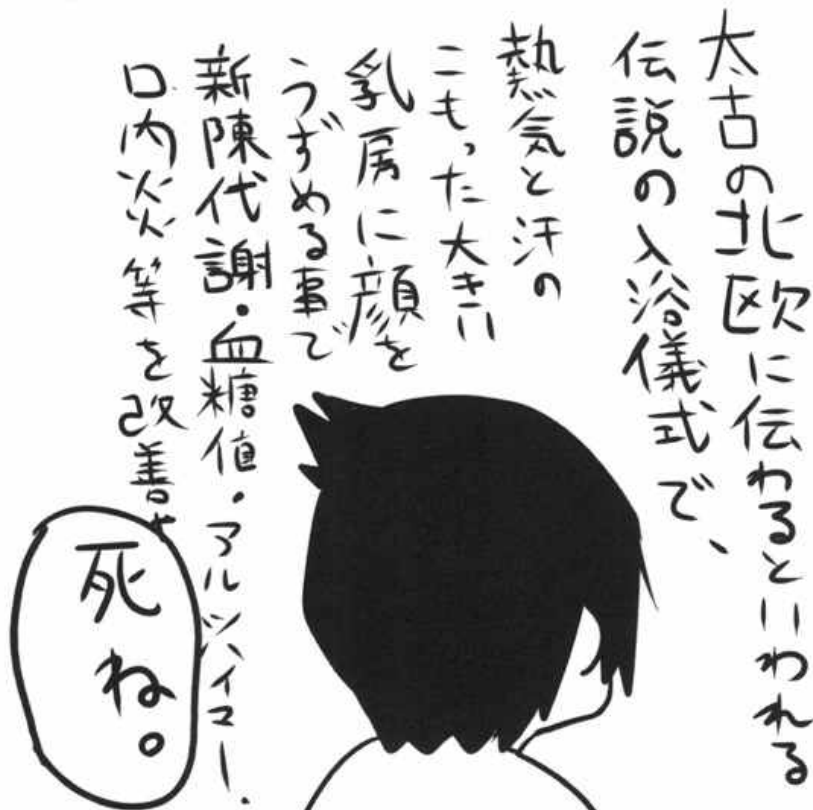 太古の北欧に伝わるといわれる
伝説の入浴儀式で、
熱気と汗の
こもった大きい
乳房に顔を
うずめる事で
新陳代謝・血糖値・アルツハイマー・
口内炎等を改善せ
死ね。